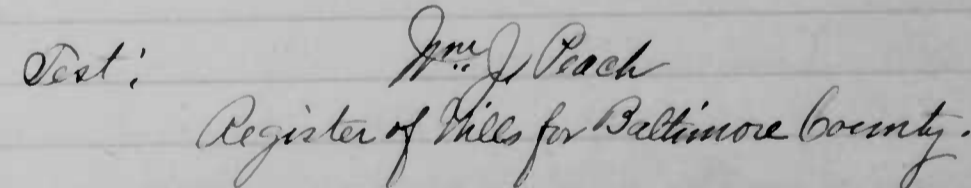 Test: Wm. J. Peach
Register of Wills for Baltimore County.